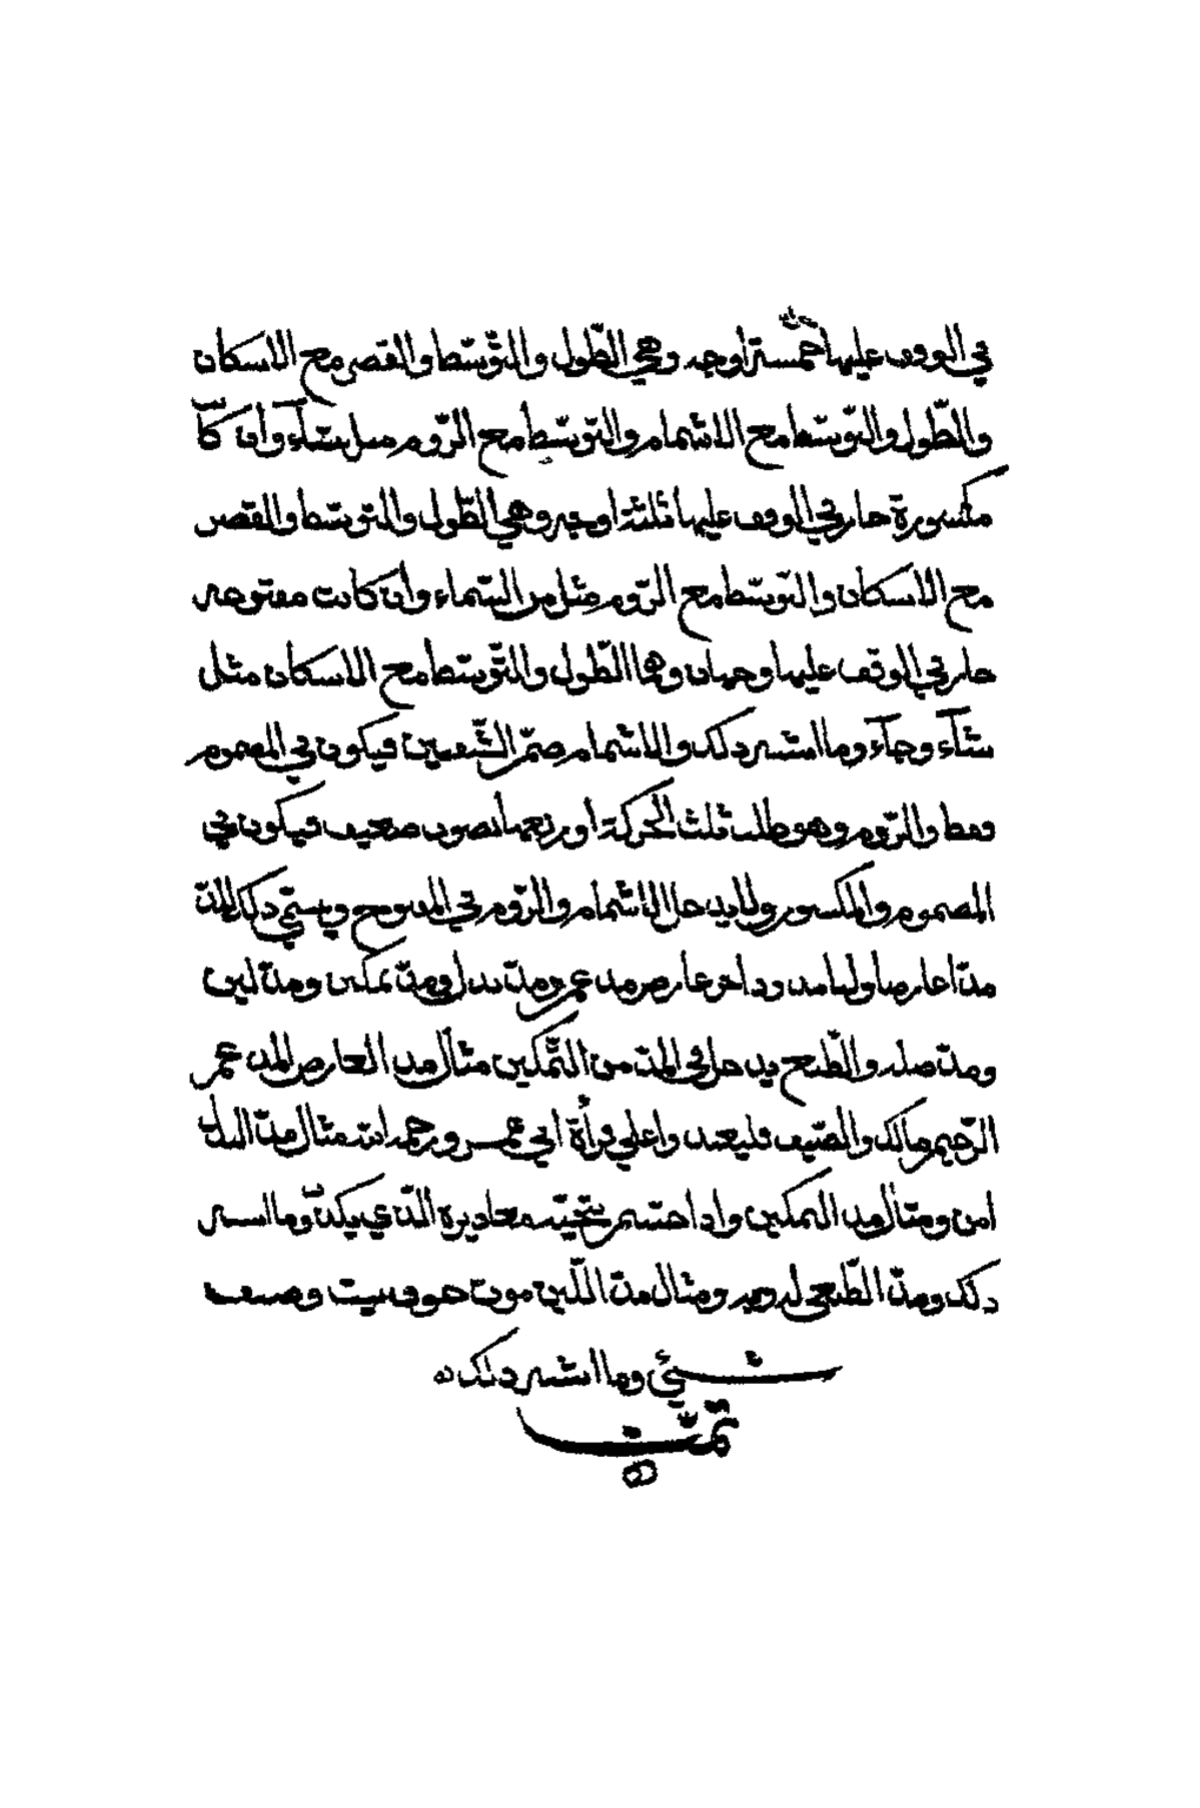 في الوقف عليها خمسة اوجه وهي الطّول والتّوسّط والقصر مع الاسكان
والطّول والتّوسّط مع الاشمام والتّوسّط مع الرّوم مثل يشآء وأن كا
مكسورة جاز في الوقف عليها ثلثة اوجه وهي الطّول والتوسّط والقصر
مع الاسكان والتوسّط مع الرّوم مثل من السّماء وأن كانت مفتوحة
جاز في الوقف عليها وجهان وهما الطّول والتّوسّط مع الاسكان مثل
شآء وجآء وما اشبه ذلك والاشمام ضمّ الشّفتين فيكون في المضموم
فقط والرّوم وهو طلب ثلث الحركة او ربعها بصوت ضعيف فيكون في
المضموم والمكسور ولا يدخل الاشمام والرّوم في المفتوح ويسمّى ذلك المدّ
مدّا عارضا عارض مد ومدّ بدل ومدّ تمكين ومدّ لين
ومدّ صله والطّبع يدخل في المدّ من التّمكين مثال مد العارض المد
الرّحيم ومالك والصّيف فليعبد واعلى قرأة ابي عمرو رحمه الله مثال مدّ البدل
امن ومثال مد التمكين واذا حيّيتم بتحيّة معاذيره الّذي يكذّب وما اشبه
ذلك ومدّ الطّبعي له وبه ومثال مدّ اللّين موت خوف بيت وصيف
شيئ وما اشبه ذلك
تمّت